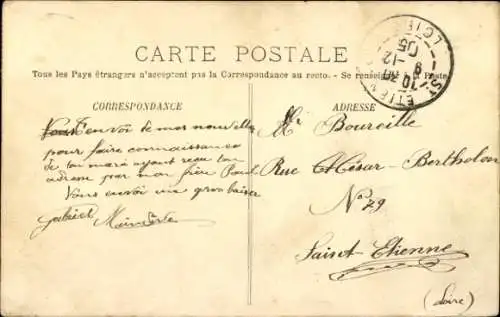 CARTE POSTALE
Tous les Pays étrangers n'acceptent pas la Correspondance au recto. — Se renseigner à la Poste.
CORRESPONDANCE
ADRESSE
envoi de mes nouvelles
pour faire connaissance
de ton mari ayant reçu ton
adresse par mon frère Paul
Vous envoi un gros baiser
Gabriel
M Boureille
Rue Cl César-Bertholon
No 79
Saint-Etienne
(Loire)
ST-ETIENNE
LOIRE
12
05